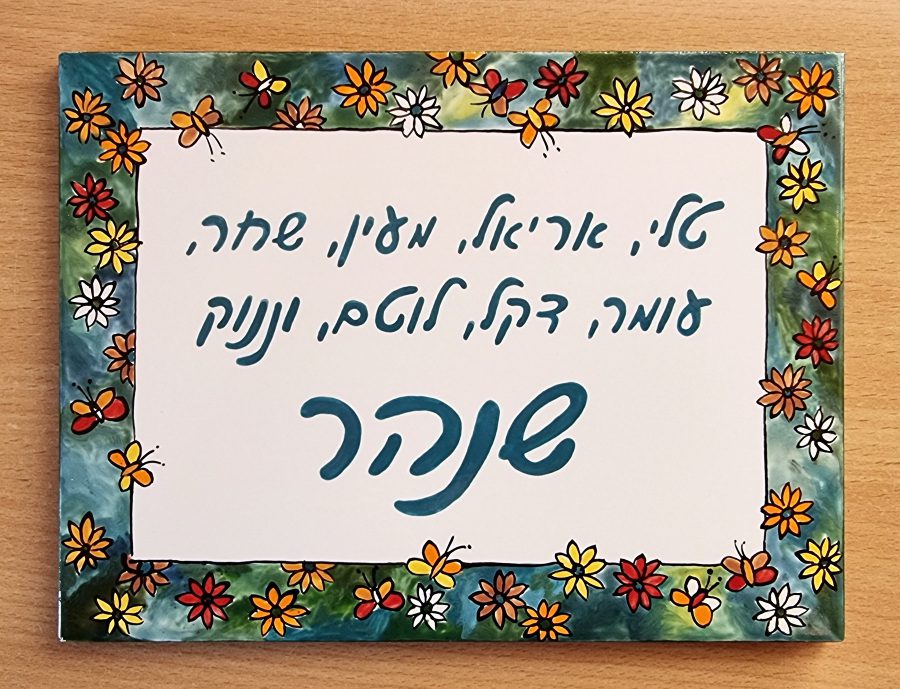 טלי, אריאל, מעין, שחר,
עומר, דקל, לוטם, וננוק
שנהר